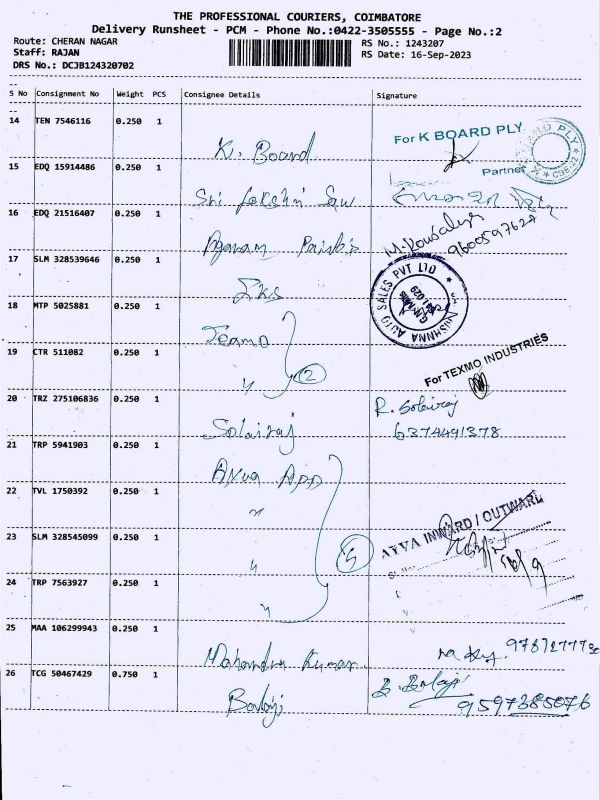 THE PROFESSIONAL COURIERS, COIMBATORE
Delivery Runsheet - PCM - Phone No.:0422-3505555 - Page No.:2
Route: CHERAN NAGAR
RS No.: 1243207
Staff: RAJAN
RS Date: 16-Sep-2023
DRS No.: DCJB124320702
S No Consignment No Weight PCS Consignee Details Signature
14 TEN 7546116 0.250 1 K. Board
For K BOARD PLY
Partner
15 EDQ 15914486 0.250 1 Sri
16 EDQ 21516407 0.250 1 Agaram Paints
M. Kowsalya
9600597624
17 SLM 328539646 0.250 1
AUTO SALES PVT LTD
18 MTP 5025881 0.250 1 Texmo
19 CTR 511082 0.250 1 " 2
For TEXMO INDUSTRIES
20 TRZ 275106836 0.250 1 Solairaj
R. Solairaj
6374491378
21 TRP 5941903 0.250 1
22 TVL 1750392 0.250 1 "
23 SLM 328545099 0.250 1 " 5
INWARD / OUTWARD
24 TRP 7563927 0.250 1 "
25 MAA 106299943 0.250 1 Mahendra Kumar
26 TCG 50467429 0.750 1 Balaji
B. Balaji
9597385076